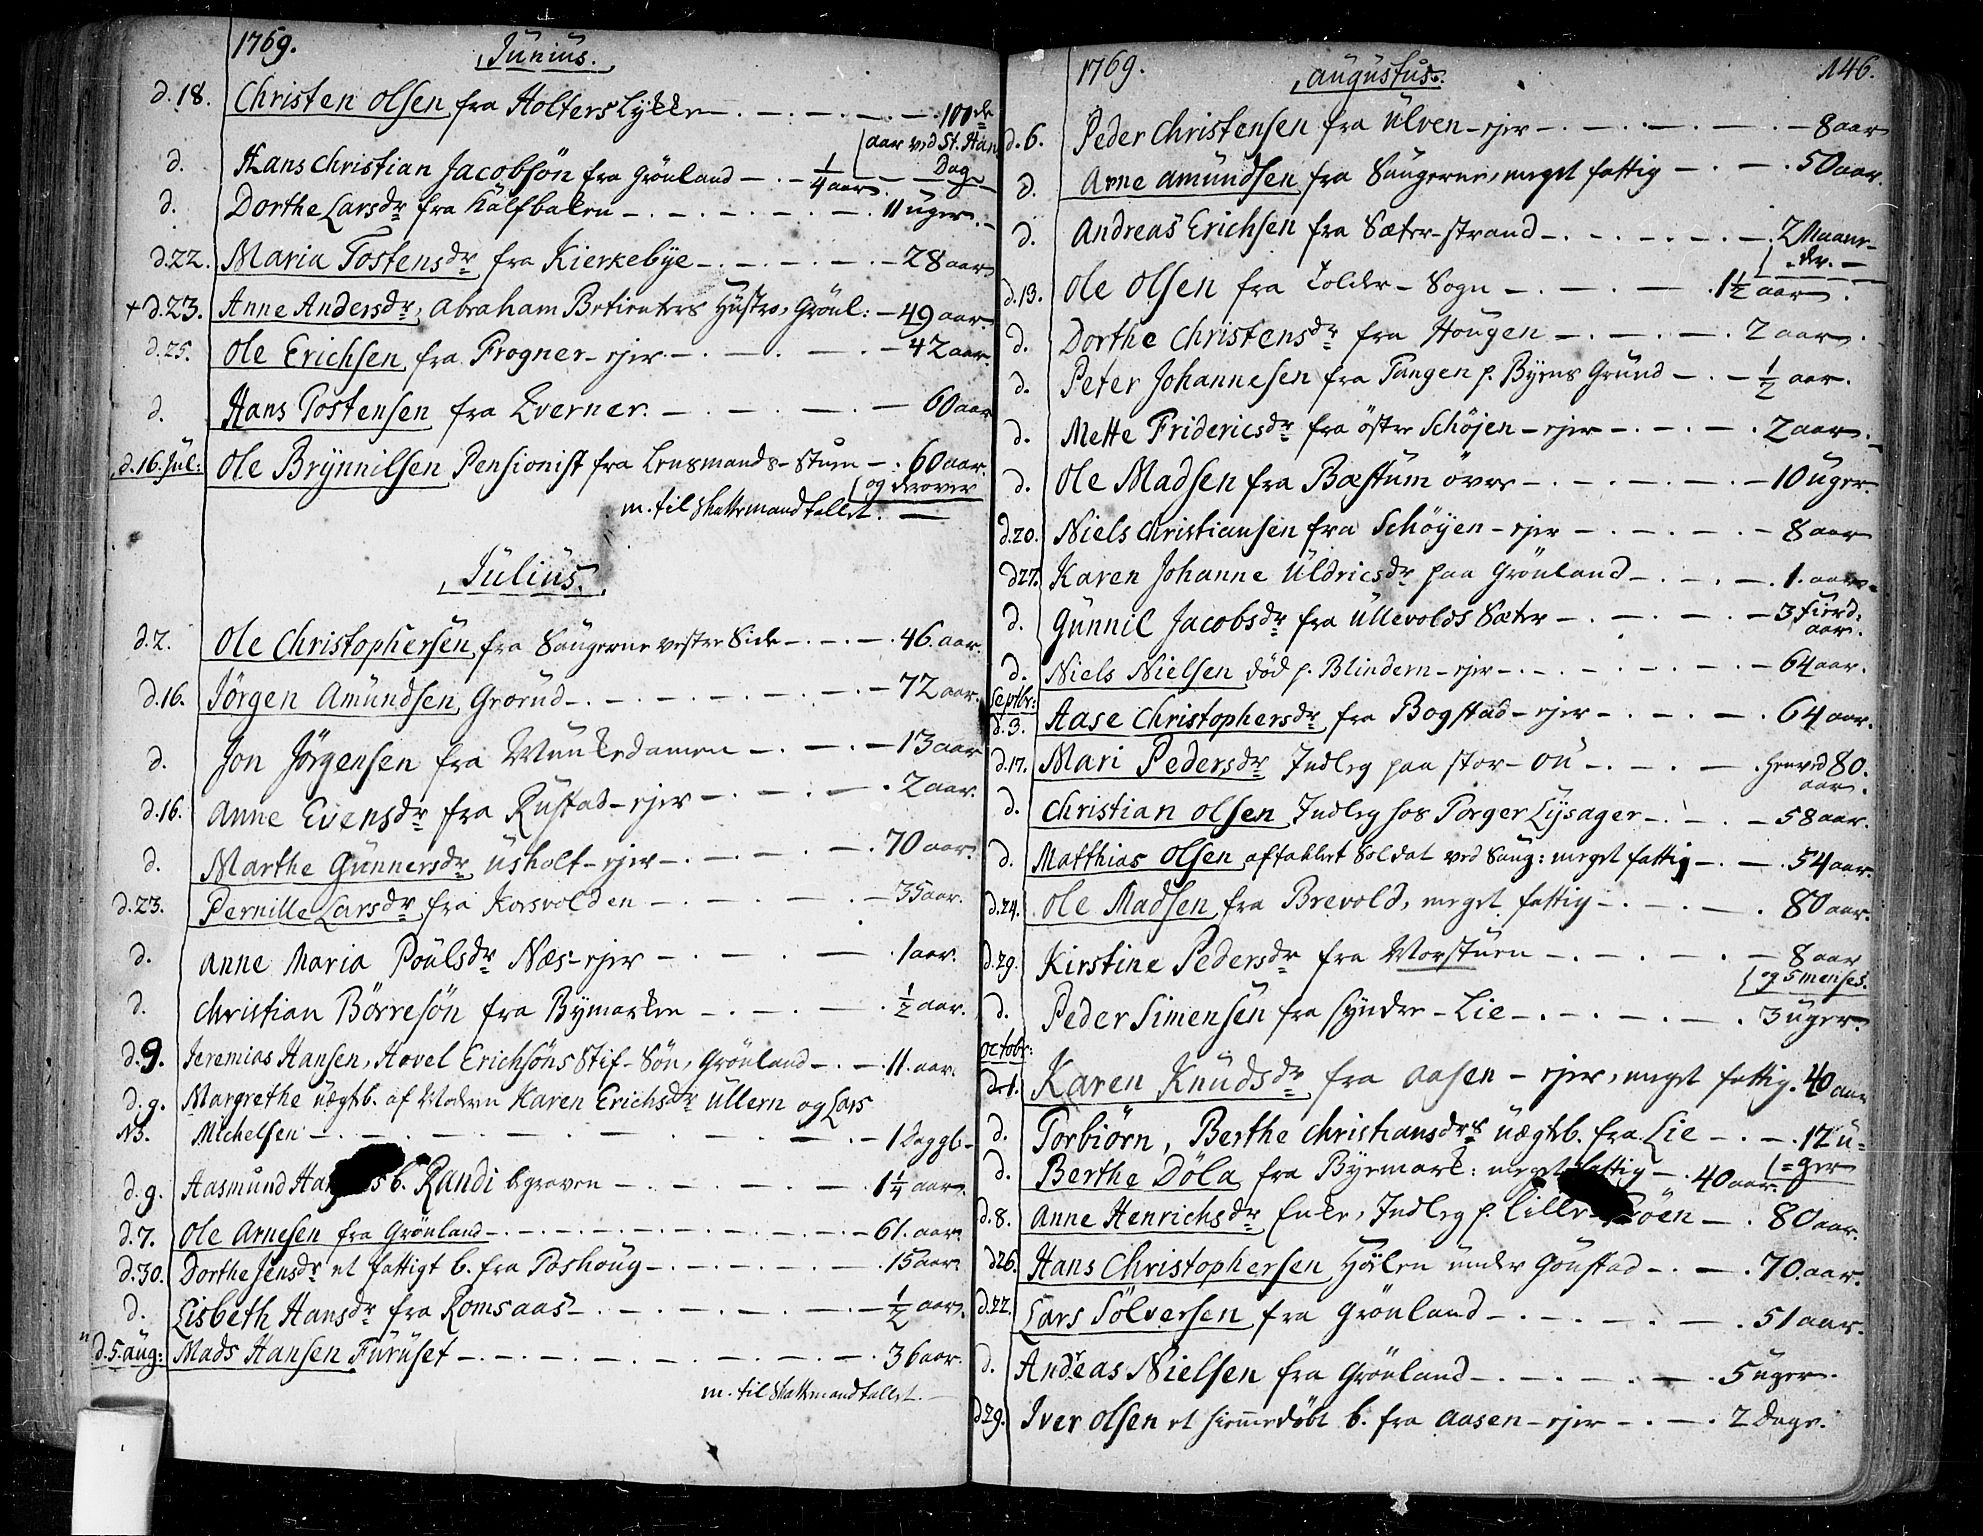 1769. Junius.
d. 18. Christen Olsen fra Holterslykke — 100de
aar ved St. Han
Dag
d. Hans Christian Jacobsön fra Grönland — 1/4 aar.
d. Dorthe Larsdr fra Kalfbaken — 11 uger.
d. 22. Maria Tostensdr fra Kierkebye — 28 aar
+ d. 23. Anne Andersdr, Abraham Betienters Hustro, Grönl: — 49 aar.
d. 25. Ole Erichsen fra Frogner-ejer — 42 aar.
d. Hans Tostensen fra Kverner. — 60 aar
d. 16. Jul: Ole Brynnilsen Pensionist fra Lensmands-Stuen — 60 aar.
og derover
m. til Skattemandtallet.
Julius.
d. 2. Ole Christophersen fra Saugerne vestre Side — 46. aar.
d. 16. Jörgen Amundsen Grorud — 72 aar.
d. Jon Jörgensen fra Munkedamen — 13 aar
d. 16. Anne Evensdr fra Rustad-ejer — 2 aar.
d. Marthe Gunnersdr Usholt-ejer — 70 aar.
d. 23. Pernille Larsdr fra Korsvolden — 35 aar.
d. Anne Maria Poulsdr Næs-ejer — 1 aar.
d. Christian Börresön fra Bymarken — 1/2 aar.
d. 9. Jeremias Hansen, Hovel Erichsöns Stif-Sön, Grönland — 11. aar.
d. 9. Margrethe uægtb. af Moderen Karen Erichsdr Ullern og Lars
NB. Michelsen — 1 Dag gl.
d. 9. Aasmund Han s b. Randi begraven — 1 1/4 aar.
d. 7. Ole Arnesen fra Grönland — 61. aar.
d. 30. Dorthe Jensdr et fattigt b. fra Poshoug — 15 aar.
d. Lisbeth Hansdr fra Romsaas — 1/2 aar.
d. 5. Aug: Mads Hansen Furuset — 36 aar.
m. til Skattemandtallet.
1769. Augustus. 146.
d. 6. Peder Christensen fra Ulven-ejer — 8 aar
d. Arne Amundsen fra Saugerne, meget fattig — 50 aar.
d. Andreas Erichsen fra Sæter-strand — 2 Maane-
der.
d. 13. Ole Olsen fra Tolder-Sogn — 1 1/2 aar.
d. Dorthe Christensdr fra Hougen — 2 aar.
d. Peter Johannesen fra Tangen p. Byens Grund — 1/2 aar.
d. Mette Fridericsdr fra östre Schöjen-ejer — 2 aar.
d. Ole Madsen fra Bæstum övre — 10 uger.
d. 20. Niels Christiansen fra Schöyen-ejer — 8 aar
d 27. Karen Johanne Uldricsdr paa Grönland — 1. aar.
d. Gunnil Jacobsdr fra Ullevolds Sæter — 3 Fierd:
aar.
d. Niels Nielsen död p. Blindern-ejer — 64 aar.
Septbr:
d. 3. Aase Christophersdr fra Bogstad-ejer — 64 aar.
d. 17. Mari Pedersdr Indleg paa stor-Ou — henved 80.
aar.
d. Christian Olsen Indleg hos Torger Lysager — 58 aar.
d. Matthias Olsen aftakket Soldat ved Saug: meget fattig — 54 aar.
d. 24. Ole Madsen fra Brevold, meget fattig — 80 aar.
d. 29. Kirstine Pedersdr fra Morstuen — 8 aar
og 5 menses.
d. Peder Simensen fra syndre-Lie — 3 uger.
Octobr:
d. 1. Karen Knudsdr fra Aasen-ejer, meget fattig. 40 aar
d. Torbiörn, Berthe Christiansdrs uægtb. fra Lie — 12 u-
=ger
d. Berthe Döla fra Byemark: meget fattig — 40 aar.
d. 8. Anne Henrichsdr Enke, Indleg p. Lille- öen — 80 aar.
d 26. Hans Christophersen Hölen under Goustad — 70. aar.
d. 22. Lars Sölversen fra Grönland — 51 aar.
d. Andreas Nielsen fra Grönland — 5 uger.
d 29. Iver Olsen et hiemmedöbt b. fra Aasen-ejer — 2 Dage.